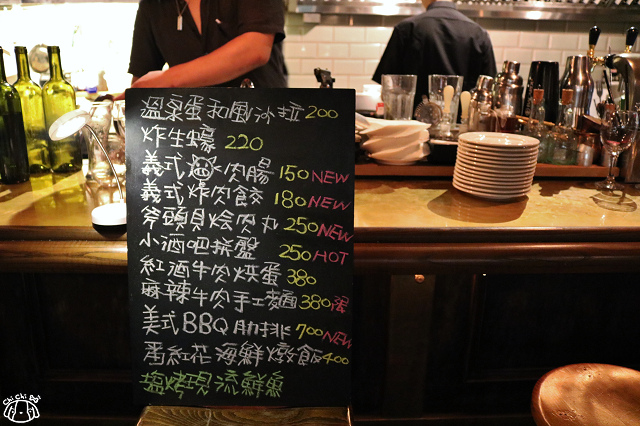 溫泉蛋和風沙拉 200
炸生蠔 220
義式 肉腸 150 NEW
義式炸肉餃 180 NEW
斧頭貝燴肉丸 250 NEW
小酒吧拼盤 250 HOT
紅酒牛肉烘蛋 380
麻辣牛肉手工麵 380
美式BBQ肋排 700 NEW
番紅花海鮮燉飯 400
塩烤現流鮮魚
Chi Chi Bar